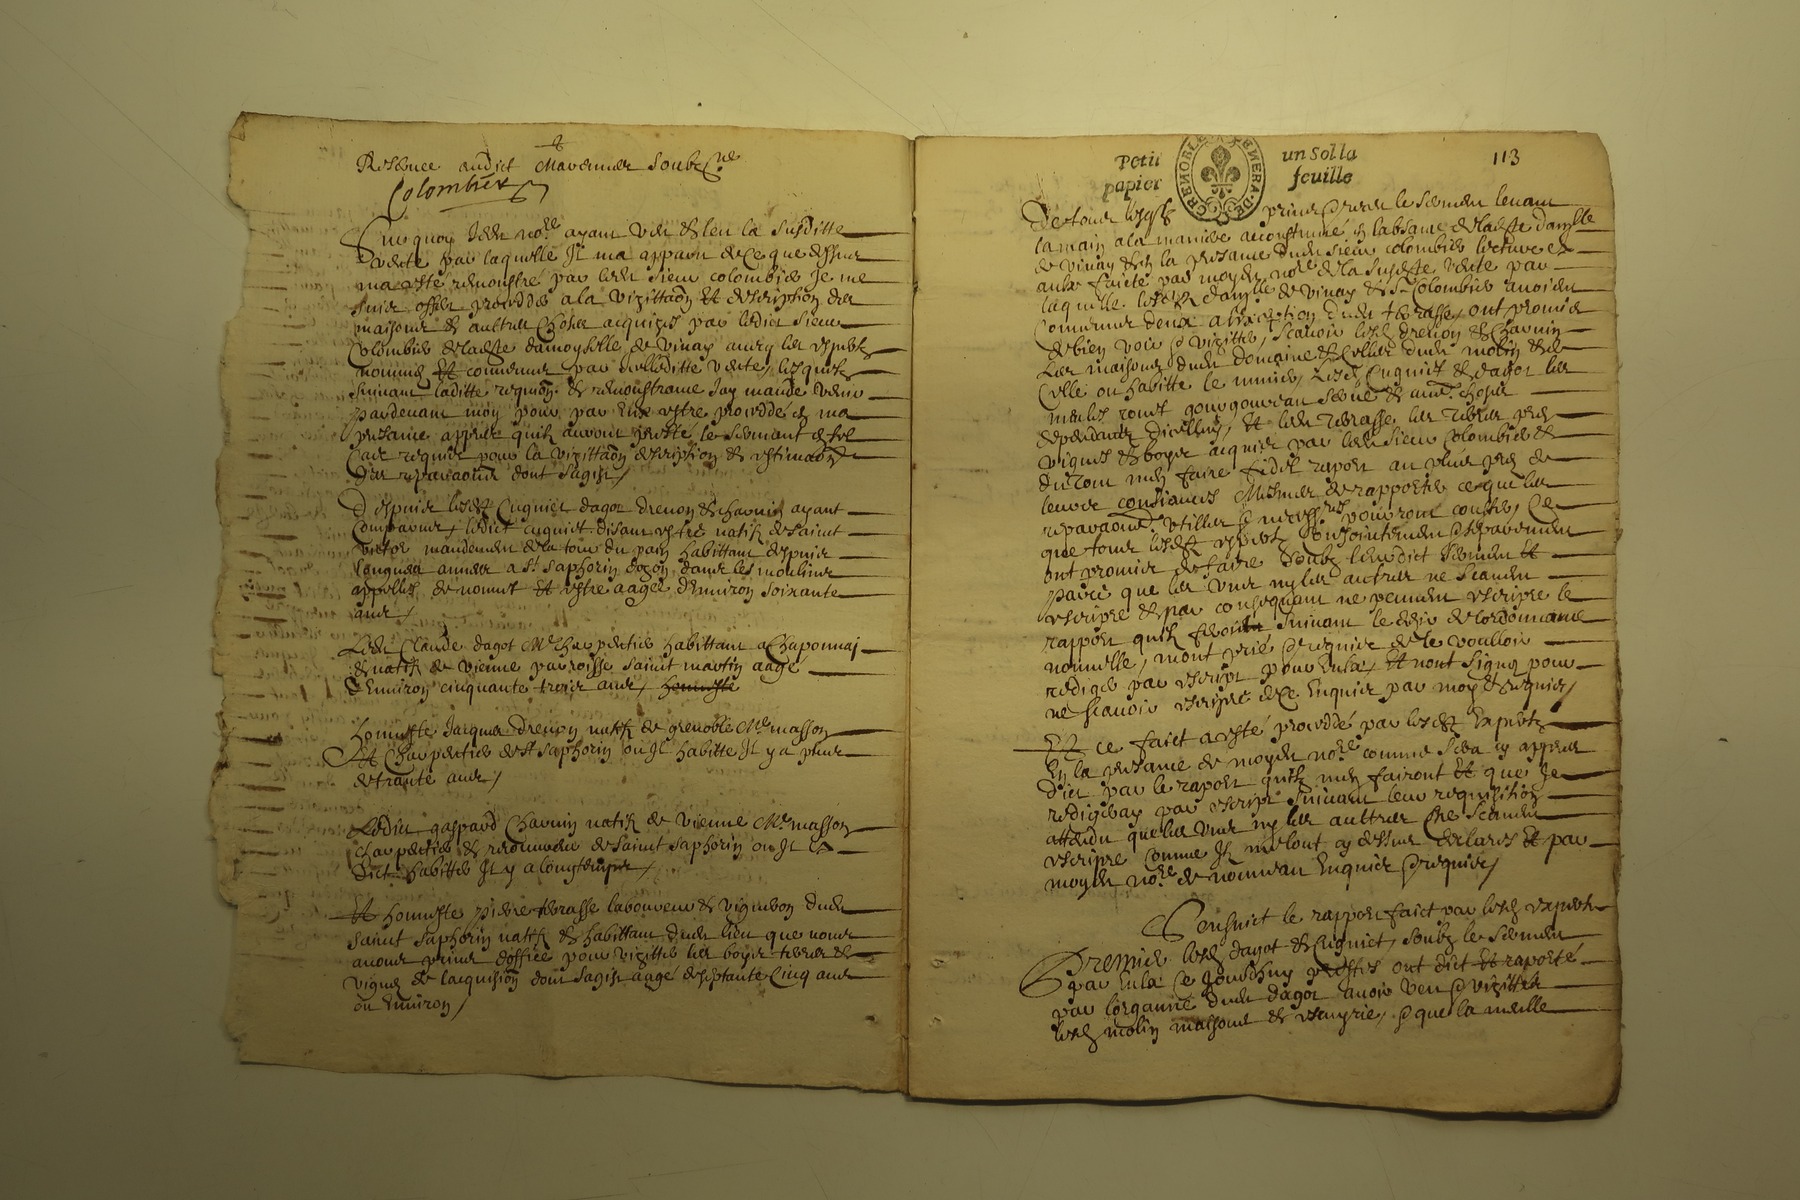 Presence audict Mavernier Soubz.ne
Colombier
Surquoy Ledit no.re ayant veu & leu la susditte
vente par laquelle Il ma apparu de ce que dessus
ma esté remonstré par ledit sieur colombier Je me
suis offert procedder a la vizittaon Et description des
maisons & auttres choses acquizes par ledict sieur
Colombier de ladte damoyselle de Vinay aveq les expertz
nommés Et convenus par Icelleditte vente, lesquelz
suivant laditte requion & remonstrance Jay mandé venir
pardevant moy pour par Eux estre proceddé en ma
presance appres quilz auront presté le serment en tel
cas requis pour la vizittaon description & estimaon
des reparaons dont sagist /
Despuis lesdz Cugniet dagot drevon & chavnin ayant
Comparus, ledict cugniet disant estre natif de saint
victor mandement de la tour du pain habittant despuis
longues annees a St Saphorin dozon dans les moulins
appellés de nonnet Et estre aagée denviron soixante
ans /
Ledit Claude dagot Me charpentier habittant a Chaponnaj
& natif de vienne parroisse saint martin aagé
denviron cinquante trois ans, honneste
Honneste Jacques Drevon natif de grenoble Me masson
Et Charpentier de St Saphorin ou Il habitte Il y a plus
de trante ans /
Ledict gaspard Chavnin natif de vienne Me masson
charpentier & de Saint Saphorin ou Il a
dict habitter Il y a longtemps /
Et honneste pierre terrasse laboureur & vigneron dudit
saint Saphorin natif & habittant dudit lieu que nous
avons prins doffice pour vizitter les boys terres &
vignes de lacquision dont sagist aagé de septante Cinq ans
ou Environ /
Petit papier
GRENOBLE
un Sol la feuille
113
De tous lesqlz prins & receu le serment levant
la main a la maniere accoustumée en labsance de ladte damlle
de Vinay & en la presance dudit sieur colombier lecture a
eulx faicte par moydit no.re de la susdte vente par
laquelle lesdz damlle de vinay & Sr Colombier avoient
Convenu deux a lexception dudit terrasse, ont promis
de bien voir & vizitter, scavoir lesdz drevon & Chavnin
Les maisons dudit domaine & Cellier dudit molin & de
Celle ou habitte le munier, Lesdz Cugniet & dagot les
meules rouet gourgouvan & autres choses
deppendants dicelluy, Et ledit terrasse les terres prés
vignes & boys acquis par ledit sieur Colombier &
du tout men faire fidel raport au plus pres de
leurs consiances Mesmes de rapporter ce que les
reparaons utilles & necessres pourront couster, Ce
que tous lesdz expertz Conjoinctement & separement
ont promis de faire soubz leurdict serment Et
parce que les uns ny les auttres ne scavent
escripre & par consequant ne peuvent escripre le
rapport quilz feront suivant le desir de lordonnance
nouvelle, mont prié & requis de le voulloir
rediger par escript pour Eulx, Et nont signé pour
ne scavoir escripre de ce Enquis par moy & requis /
Et ce faict a esté proceddé par lesdz Expertz
En la presance de moydit no.re comme sera cy appres
dict par le raport quilz men fairont Et que Je
redigeray par escript suivant leur requisition
attendu que les uns ny les auttres ne scavent
escripre comme Ilz me lont cy dessus declarés Et par
moydit no.re de nouveau Enquis & requis /
Sensuict le rapport faict par lesdz Expertz
Premier lesdz dagot & Cugniet, soubz le serment
par Eulx Ce jourdhuy prestés ont dict Et raporté
par lorganne dudit dagot avoir veu & vizitté
lesdz molin maisons & escuyrie, & que la meulle